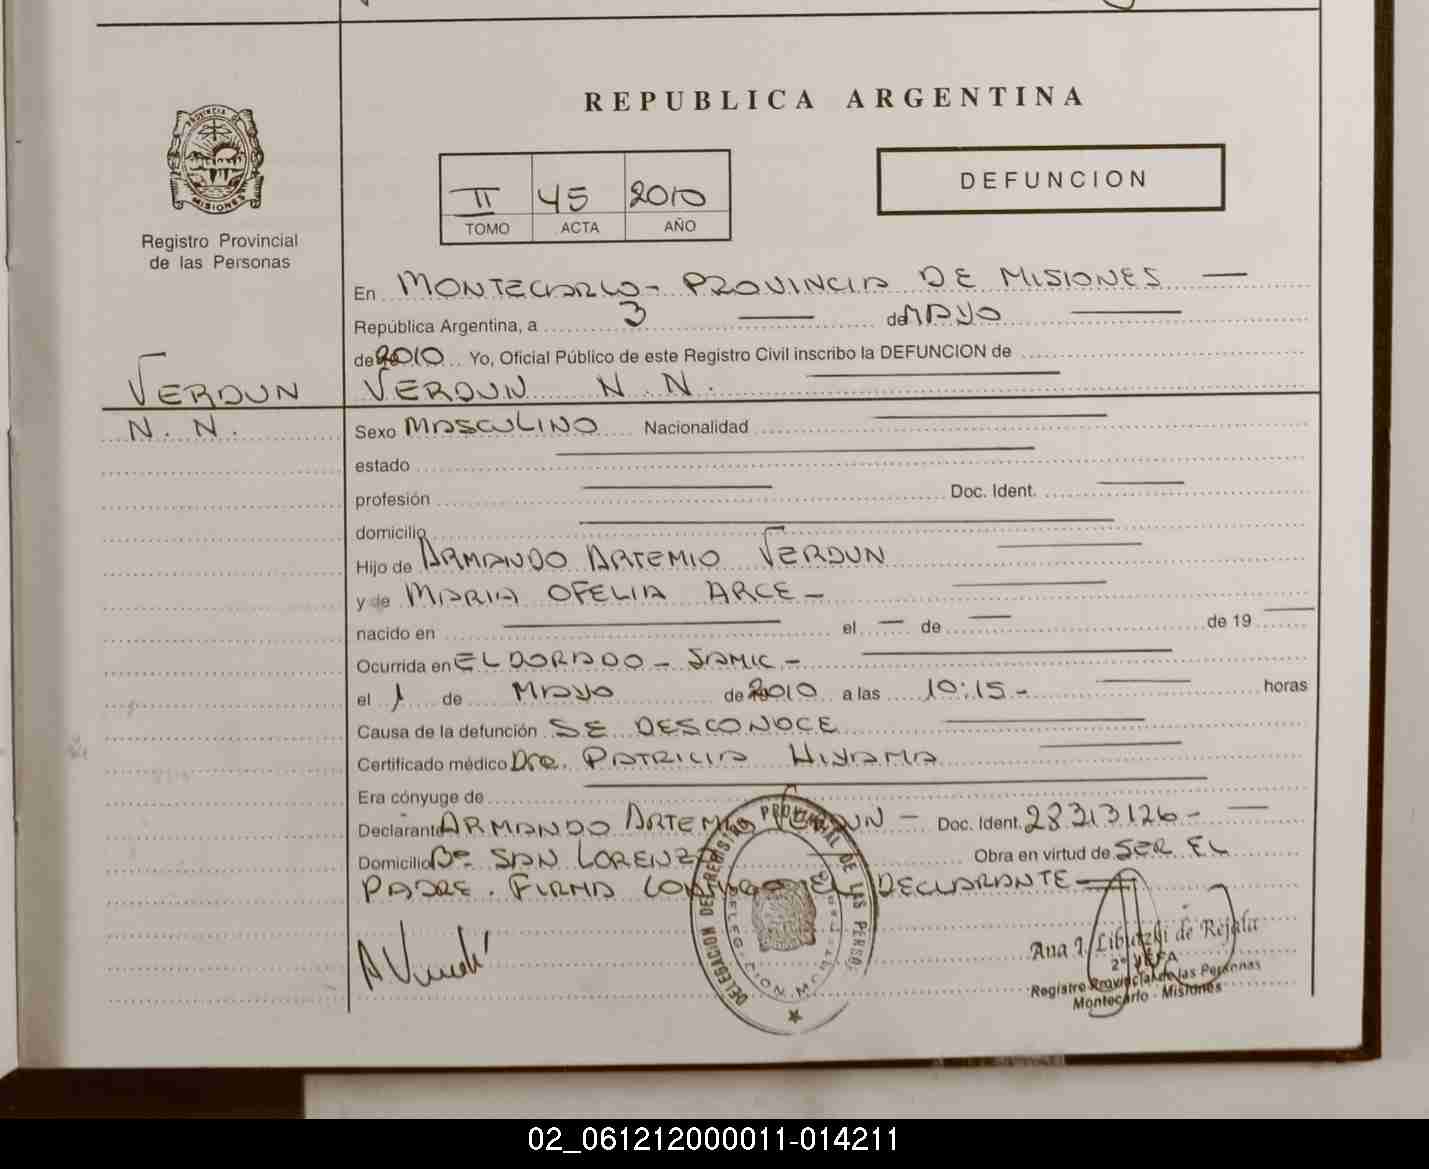 REPUBLICA ARGENTINA
PROVINCIA DE MISIONES
Registro Provincial
de las Personas
II 45 2010
TOMO ACTA AÑO
DEFUNCION
En MONTECARLO - PROVINCIA DE MISIONES
República Argentina, a 3 de MAYO
de 2010 Yo, Oficial Público de este Registro Civil inscribo la DEFUNCION de
VERDUN
VERDUN N. N.
N. N.
Sexo MASCULINO Nacionalidad
estado
profesión Doc. Ident.
domicilio
Hijo de ARMANDO ARTEMIO VERDUN
y de MARIA OFELIA ARCE -
nacido en el de de 19
Ocurrida en ELDORADO - SAMIC -
el 1 de MAYO de 2010 a las 10:15 - horas
Causa de la defunción SE DESCONOCE
Certificado médico Dra. PATRICIA HIYAMA
Era cónyuge de
Declarante ARMANDO ARTEMIO VERDUN - Doc. Ident. 28313126 -
Domicilio Bº SAN LORENZO Obra en virtud de SER EL
PADRE. FIRMA CONMIGO EL DECLARANTE
DELEGACION DEL REGISTRO PROVINCIAL DE LAS PERSONAS
A Verdun
Ana I. de Rejala
2º JEFA
Registro Provincial de las Personas
Montecarlo - Misiones
02_061212000011-014211